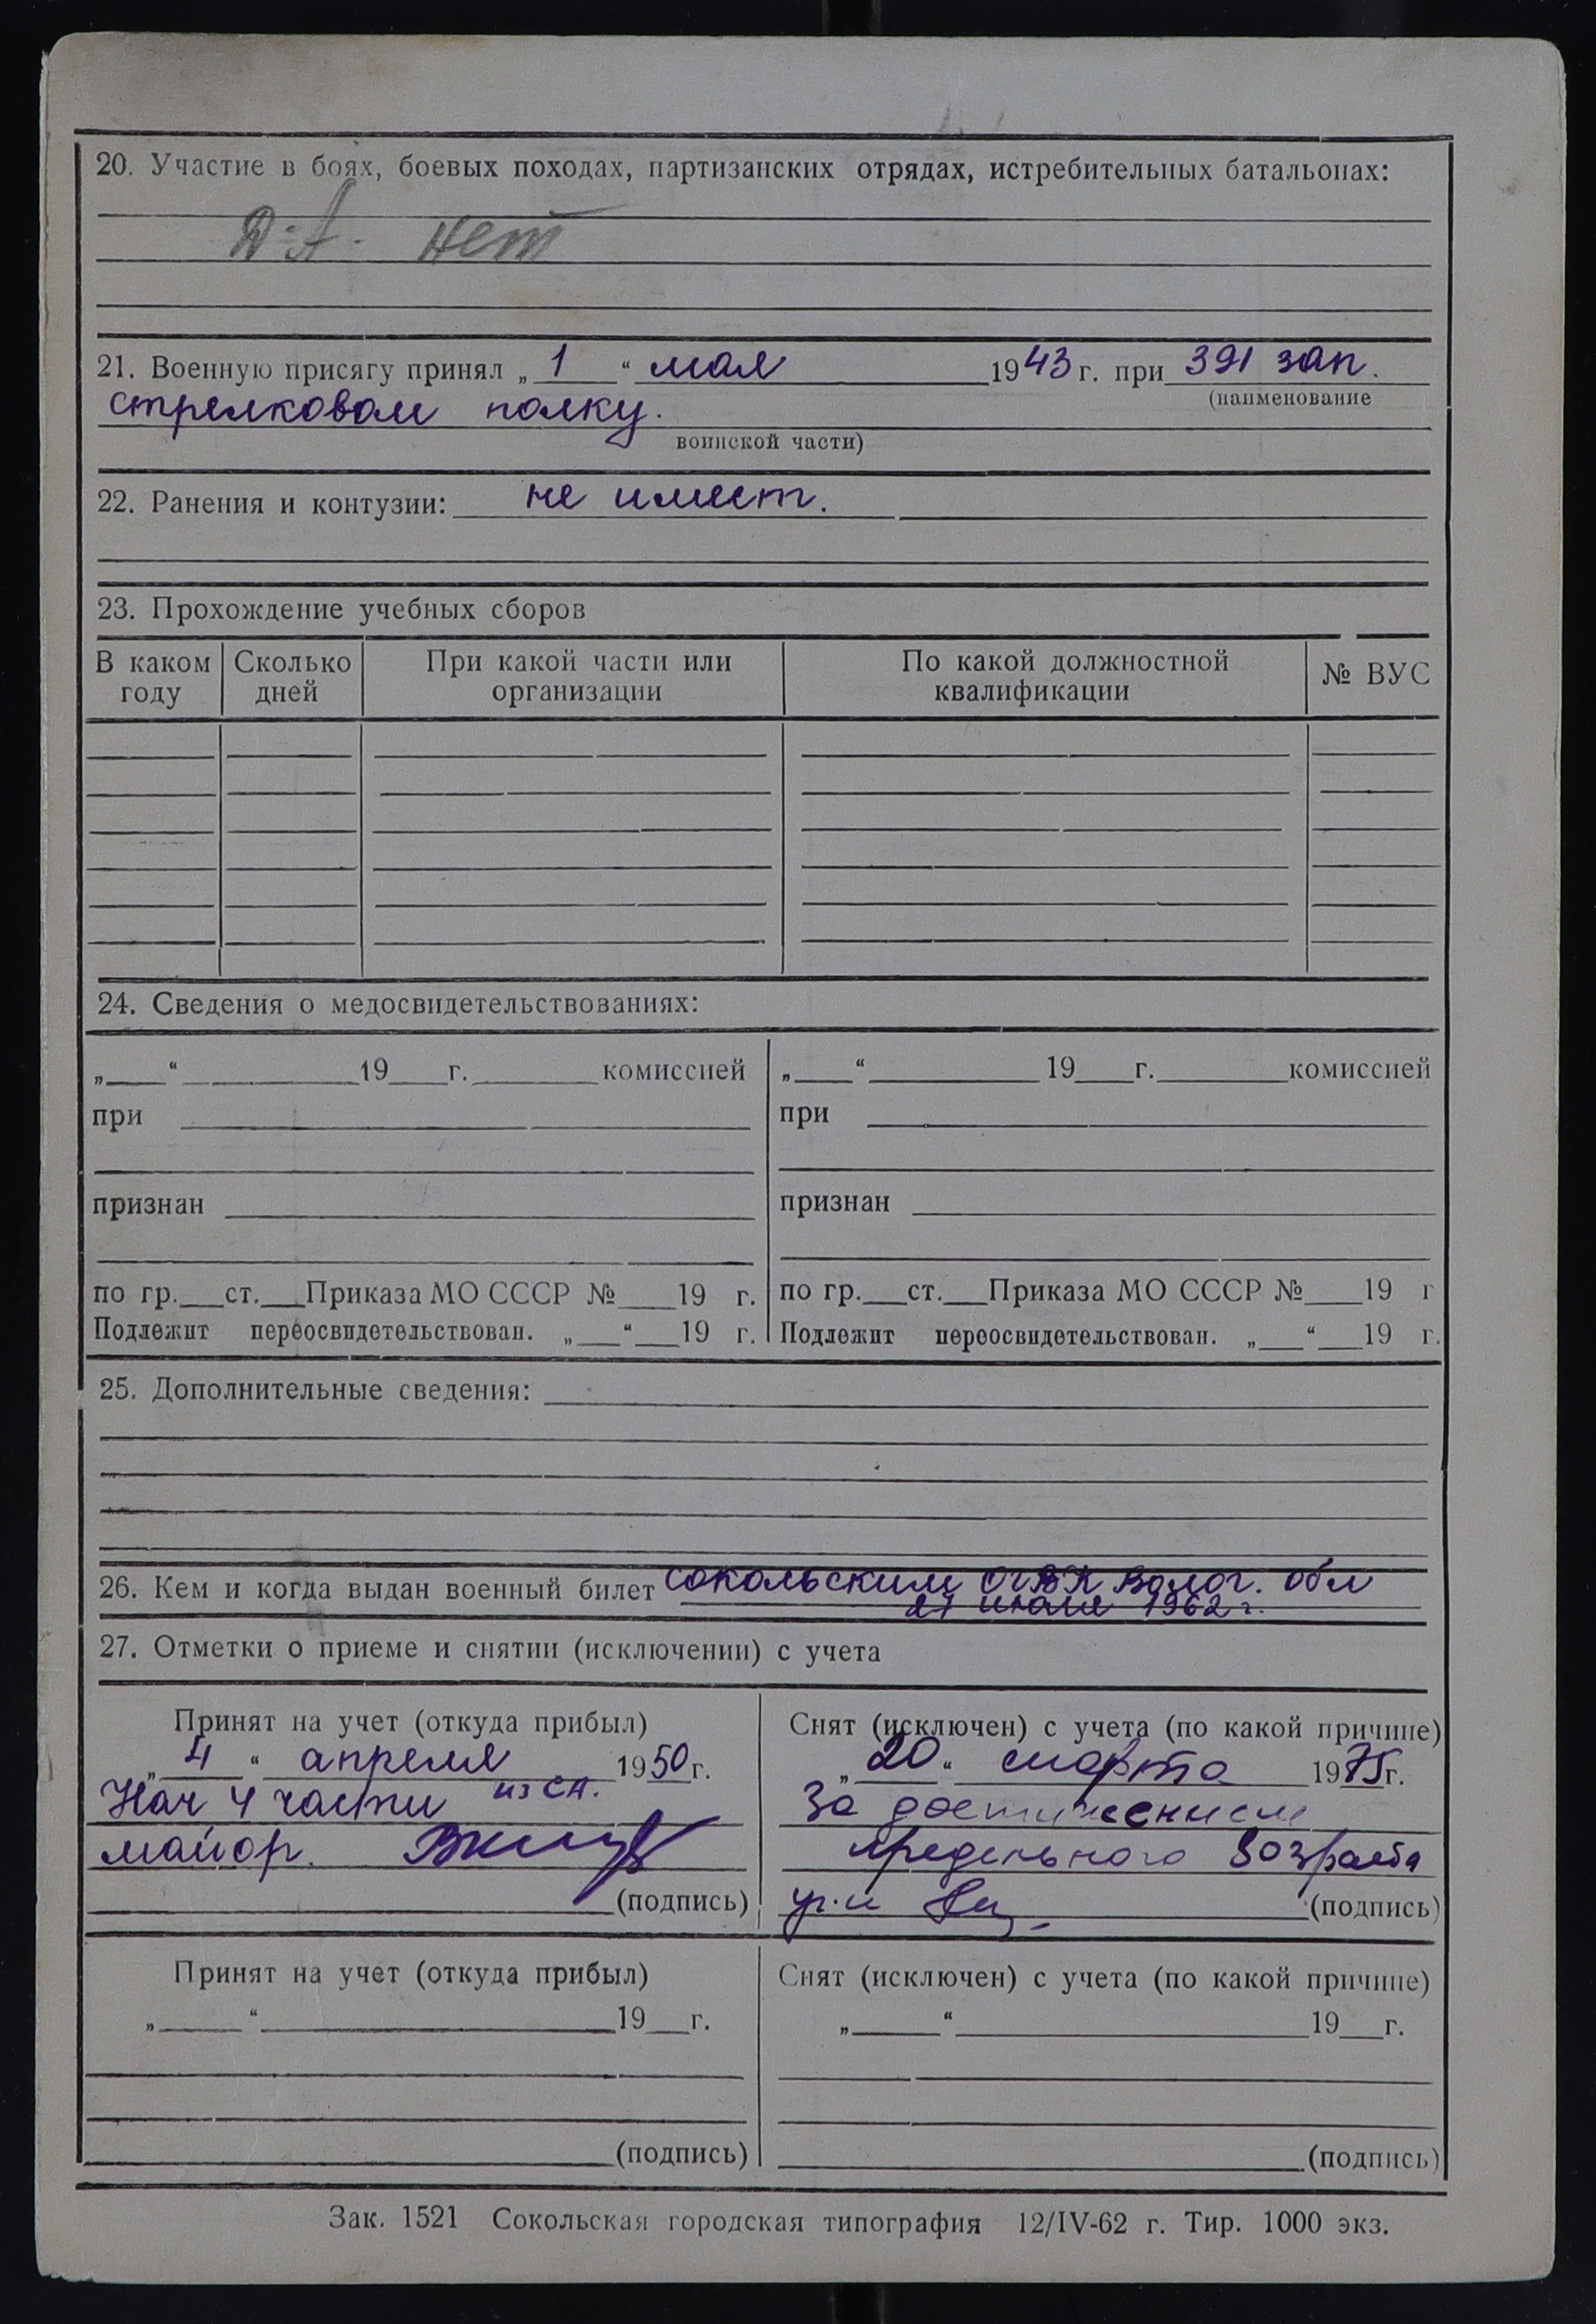 20. Участие в боях, боевых походах, партизанских отрядах, истребительных батальонах:
нет
21. Военную присягу принял „ 1 “ мая 1943 г. при 391 зап.
(наименование
стрелковом полку.
воинской части)
22. Ранения и контузии: не имеет.
23. Прохождение учебных сборов
В каком году Сколько дней При какой части или организации По какой должностной квалификации № ВУС
24. Сведения о медосвидетельствованиях:
„ “ 19 г. комиссией „ “ 19 г. комиссией
при при
признан признан
по гр. ст. Приказа МО СССР № 19 г. по гр. ст. Приказа МО СССР № 19 г
Подлежит переосвидетельствован. „ “ 19 г. Подлежит переосвидетельствован. „ “ 19 г.
25. Дополнительные сведения:
26. Кем и когда выдан военный билет Сокольским ОГВК Волог. обл
27 июля 1962 г.
27. Отметки о приеме и снятии (исключении) с учета
Принят на учет (откуда прибыл) Снят (исключен) с учета (по какой причине)
„ 4 “ апреля 1950 г. „ 20 “ марта 1975 г.
Нач 4 части из СА. За достижением
майор. предельного возраста
(подпись) (подпись)
Принят на учет (откуда прибыл) Снят (исключен) с учета (по какой причине)
„ “ 19 г. „ “ 19 г.
(подпись) (подпись)
Зак. 1521 Сокольская городская типография 12/IV-62 г. Тир. 1000 экз.